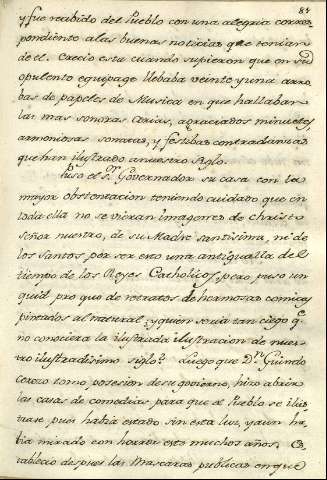 81
y fue recibido del Pueblo con una alegria corres
pondiente a las buenas noticias que tenian
de el. Crecio esta cuando supieron que en su
opulento equipage llebaba veinte y una arro
bas de papeles de Musica en que hallaban
las mas sonoras arias, agraciados minuetes,
armoniosas sonatas, y festibas contradanzas
que han ilustrado a nuestro siglo.
Puso el Sr. Governador su casa con la
mayor obstentacion teniendo cuidado que en
toda ella no se vieran imagenes de christo
señor nuestro, de su Madre santisima, ni de
los santos por ser esto una antigualla del
tiempo de los Reyes Catholicos, pero puso un
quid pro quo de retratos de hermosas comicas
pintados al natural, y quien seria tan ciego qe
no conociera la ilustrada ilustracion de nues
tro ilustradisimo siglo? Luego que Dn. Guindo
Cerezo tomo posesion de su govierno, hizo abrir
las casas de comedias para que el Pueblo se ilus
trase pues habia estado sin esta luz, y aun ha
bia mirado con horror esto muchos años. Es
tablecio despues las Mascaras publicas en que